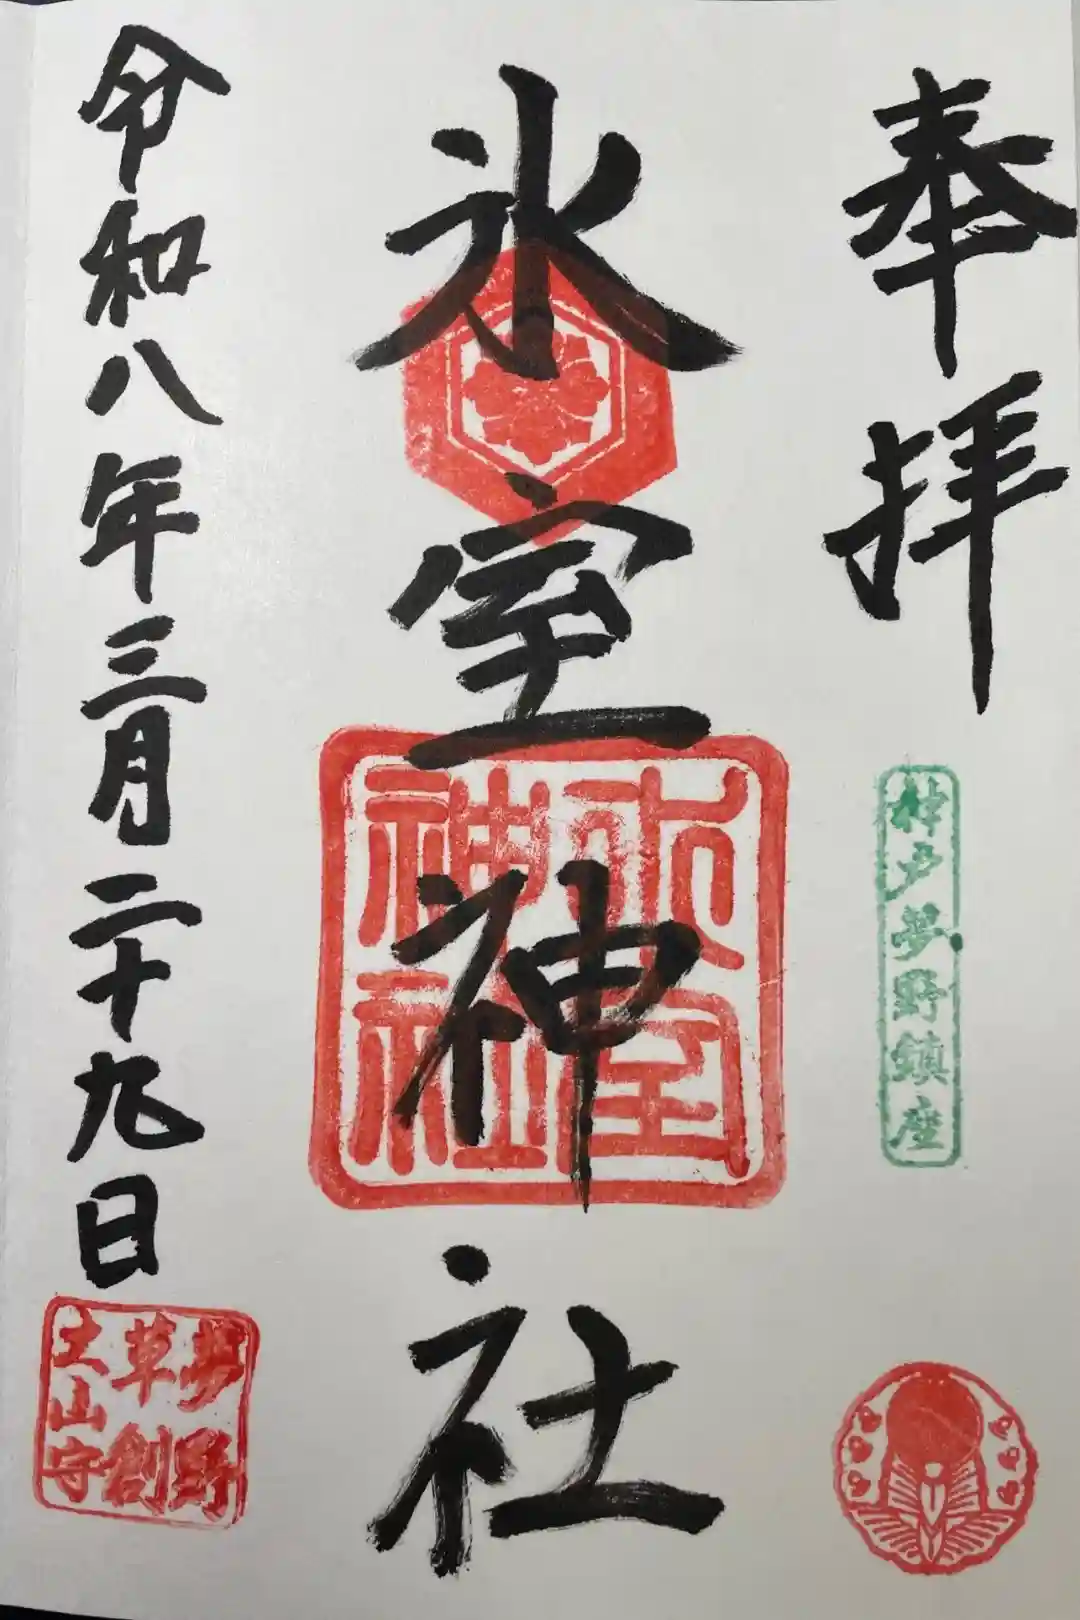 奉拝
神戸夢野鎮座
氷室神社
氷室
神社
令和八年三月二十九日
夢野
草創
之山守